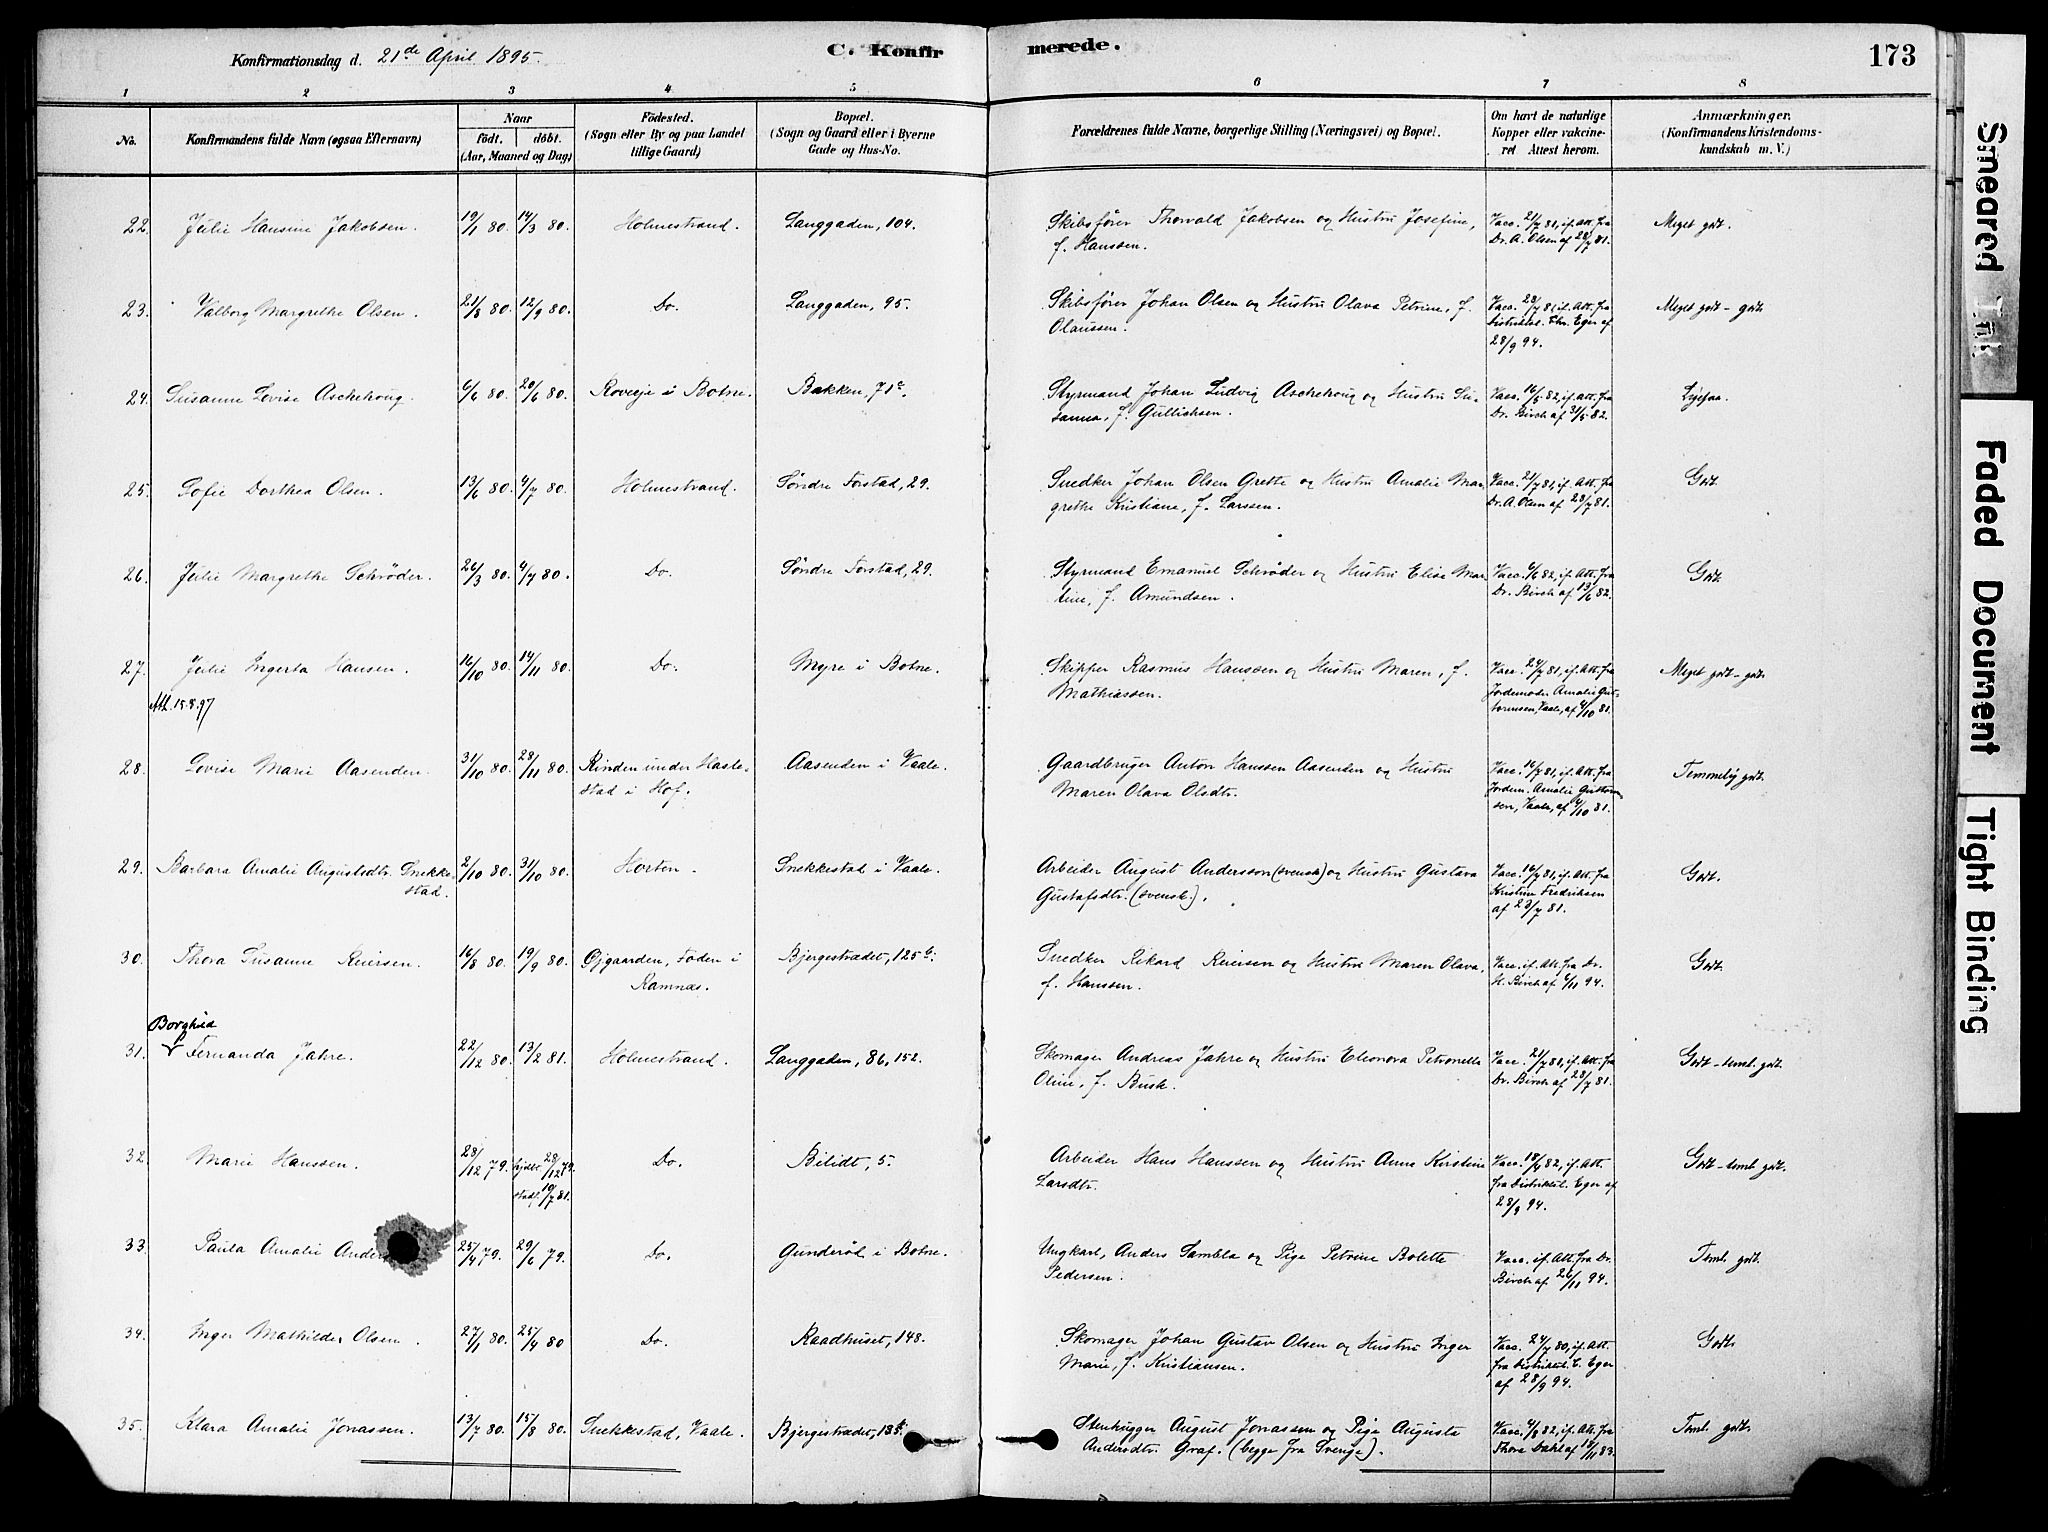 Konfirmationsdag d. 21de April 1895.
C. Konfirmerede.
173
1 2 3 4 5 6 7 8
No.
Konfirmandens fulde Navn (ogsaa Efternavn)
Naar
födt. döbt.
(Aar, Maaned og Dag)
Födested.
(Sogn eller By og paa Landet
tillige Gaard)
Bopæl.
(Sogn og Gaard eller i Byerne
Gade og Hus-No.
Forældrenes fulde Navne, borgerlige Stilling (Næringsvei) og Bopæl.
Om havt de naturlige
Kopper eller vakcine-
ret Attest herom.
Anmærkninger.
(Konfirmandens Kristendoms-
kundskab m. V.)
22. Julie Hansine Jakobsen. 19/1 80. 14/3 80. Holmestrand. Langgaden, 104. Skibsfører Thorvald Jakobsen og Hustru Josefine, Vacc. 21/7 81, if. Att. fra Meget godt.
f. Hanssen. Dr. A. Olsen af 28/7 81.
23. Valborg Margrethe Olsen. 21/8 80. 12/9 80. Do. Langgaden, 95. Skibsfører Johan Olsen og Hustru Olava Petrine, f. Vacc. 28/7 81, if. Att. fra Meget godt - godt
Olaussen. Distriktsl. Chr. Eger af
28/9 94.
24. Susanne Lovise Aschehoug. 6/6 80. 20/6 80. Rovesje i Botne. Bakken, 71a. Styrmand Johan Ludvig Aschehoug og Hustru Su- Vacc. 16/5 82, if. Att. fra Ligesaa.
sanna, f. Gullichsen. Dr. Birch af 31/5 82.
25. Sofie Dorthea Olsen. 13/6 80. 4/7 80. Holmestrand. Søndre Torstad, 29. Snedker Johan Olsen Grette og Hustru Amalie Mar- Vacc. 21/7 81, if. Att. fra Godt.
grethe Kristiane, f. Larssen. Dr. A. Olsen af 28/7 81.
26. Julie Margrethe Schrøder. 26/3 80. 4/7 80. Do. Søndre Torstad, 29. Styrmand Emanuel Schrøder og Hustru Elise Mar- Vacc. 6/6 82, if. Att. fra Godt.
tine, f. Amundsen. Dr. Birch af 13/6 82.
27. Julie Ingerta Hansen. 16/10 80. 14/11 80. Do. Myre i Botne. Skipper Rasmus Hanssen og Hustru Maren, f. Vacc. 24/7 81, if. Att. fra Meget godt - godt.
Att. 15.8.97 Mathiassen. Jordemoder Amalie Gut-
tormsen, Vaale, af 4/10 81.
28. Lovise Marie Aasenden. 31/10 80. 28/11 80. Rinden under Hasle- Aasenden i Vaale. Gaardbruger Anton Hanssen Aasenden og Hustru Vacc. 16/7 81, if. Att. fra Temmelig godt.
stad i Hof. Maren Olava Olsdtr. Jordem. Amalie Guttorm-
sen, Vaale, af 4/10 81.
29. Barbara Amalie Augustsdtr. Snekke- 2/10 80. 31/10 80. Horten. Snekkestad i Vaale. Arbeider August Andersson (svensk) og Hustru Gustava Vacc. 16/7 81, if. Att. fra Godt.
stad. Gustafsdtr. (svensk). Kristine Fredriksen
af 23/7 81.
30. Thora Susanne Reiersen. 16/8 80. 19/9 80. Øjgaarden, Foden i Bjergestrædet, 125b. Snedker Rikard Reiersen og Hustru Maren Olava, Vacc. if. Att. fra Dr. Godt.
Ramnæs. f. Hanssen. H. Birch af 6/11 94.
Borghild
31. Fernanda Jahre. 22/12 80. 13/2 81. Holmestrand. Langgaden, 86, 152. Skomager Andreas Jahre og Hustru Eleonora Petronelle Vacc. 21/7 81, if. Att. fra Godt - teml. godt.
Oline, f. Busk. Dr. Birch af 28/7 81.
32. Marie Hanssen. 28/12 79. hjdbt. 28/12 79. Do. Bilidt, 5. Arbeider Hans Hanssen og Hustru Anne Kirstine Vacc. 18/7 82, if. Att. Godt - teml. godt.
stadf. 10/7 81. Larsdtr. fra Distriktsl. Eger af
28/9 94.
33. Paula Amalie Anders 25/4 79. 29/6 79. Do. Gunderød i Botne. Ungkarl, Anders Sambla og Pige Petrine Bolette Vacc. if. Att. fra Dr. Teml. godt.
Pedersen. Birch af 26/11 94.
34. Inger Mathilde Olsen. 27/1 80. 25/4 80 Do. Raadhuset, 148. Skomager Johan Gustav Olsen og Hustru Inger Vacc. 24/7 80, if. Att. Godt.
Marie, f. Kristiansen. fra Distriktsl. C. Eger
af 28/9 94.
35. Klara Amalie Jonassen. 13/7 80. 15/8 80. Snekkestad, Vaale. Bjergestrædet, Stenhugger August Jonassen og Pige Augusta Vacc. 4/8 82, if. Att. fra Teml. godt.
Andersdtr. Graf. (begge fra Sverige). Thora Dahl af 83.
Smeared Ink
Faded Document
Tight Binding